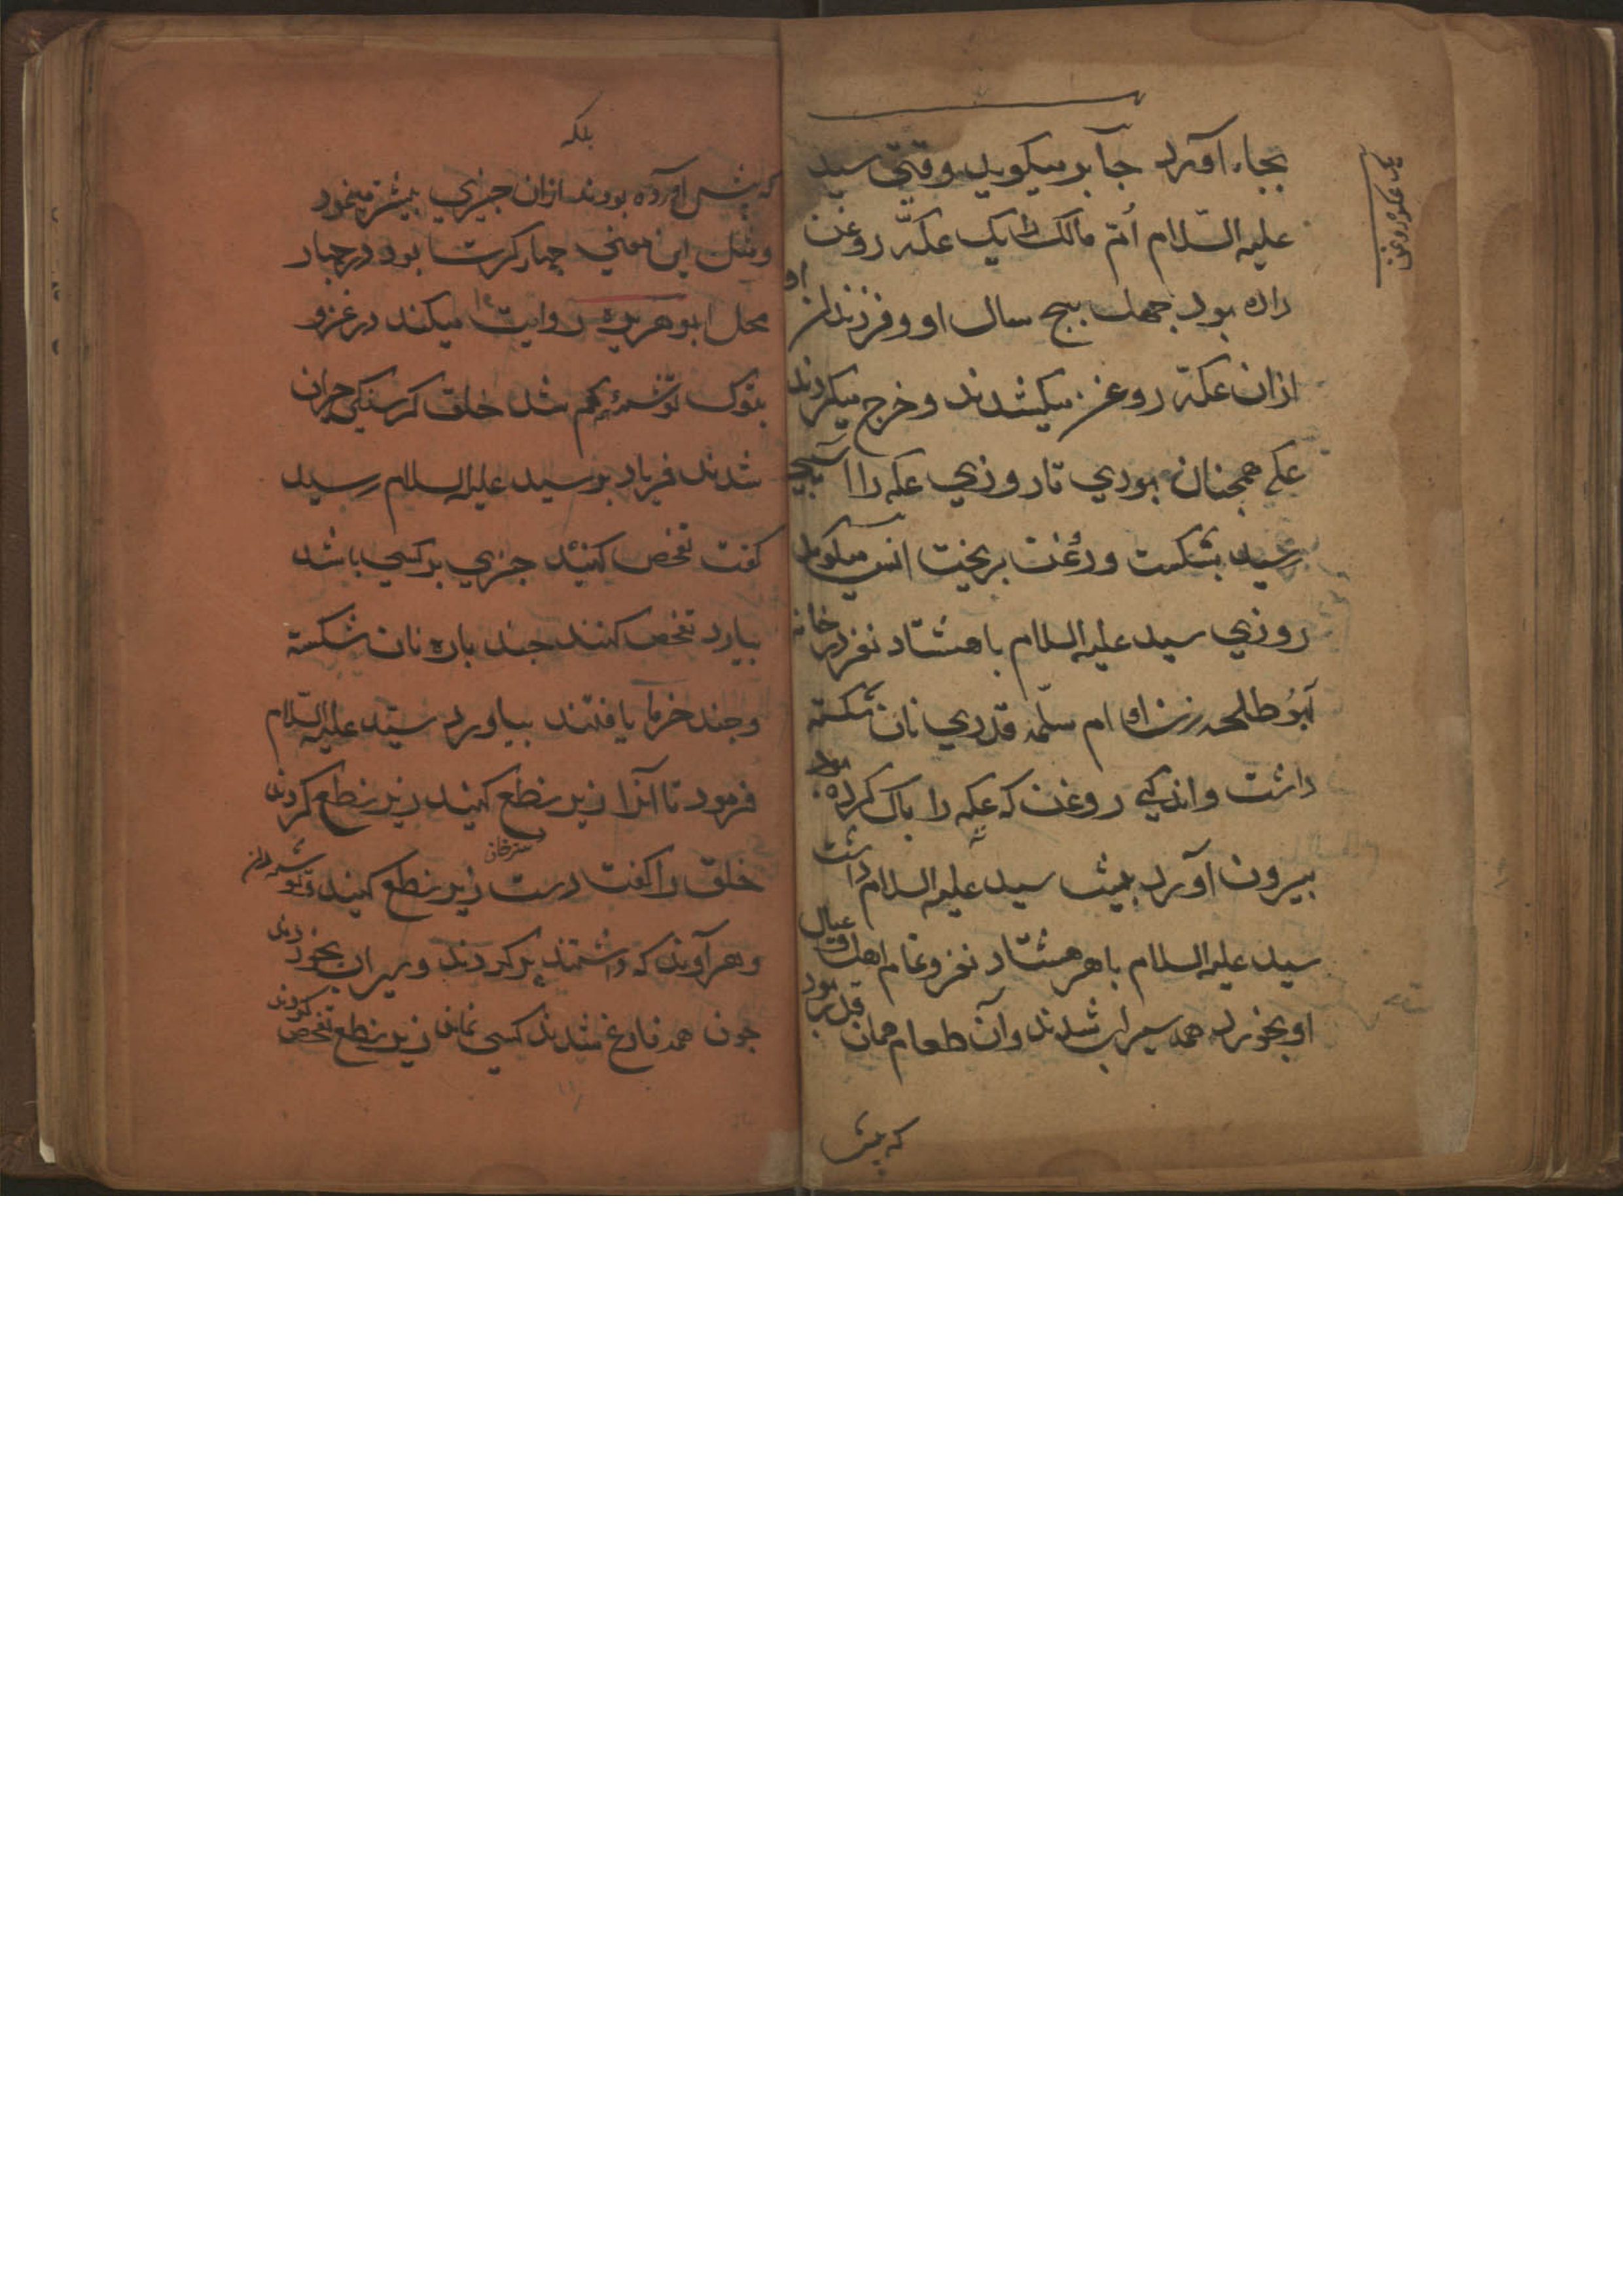 بجاء آورد جابر میکوید وقتی سید
علیه السّلام اُمّ مالک را یک عکّه روغن
داده بود چهل پنج سال او و فرزندان او
ازان عکّه روغن میکشدند و خرج میکردند
عکه همچنان بودی تا روزی عکه را آسیبی
رسید بشکست و روغن بریخت انس میکوید
روزی سید علیه السلام با هشتاد نفر در خانه
ابُو طلحه زن او ام سلمه قدری نان شکسته
داشت و اندکی روغن که عکه را پاک کرده بود
بیرون آورد پیش سید علیه السلام داشت
سید علیه السلام با هر هشتاد نفر و تمام اهل و عیال
او بخورد همه سیراب شدند و آن طعام همان قدر بود
که پیش
بلکه
که پیش آورده بودند ازان چیزی بیشتر مینمود
و مثل این معنی چهار کرت بود در چهار
محل ابو هریره روایت میکند در غزو
تبوک توشه کم شد خلق کرسنکی حیران
شدند فریاد بر سید علیه السلام رسید
کفت تفحص کنید چیزی بر کسی باشد
بیارد تفحص کنند چند پاره نان شکسته
و چند خرما یافتند بیاورد سیّد علیه السّلام
فرمود تا آنرا زیر نطع کنید زیر نطع کردند
خلق را کفت دست زیر نطع کنید
و هر آوند که داشتند پر کردند و سیران بخوردند
چون همه فارغ شدند کسی نماند زیر نطع تفحص کردند